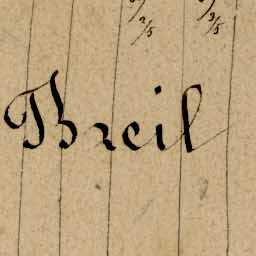 2/5 3/5
Breil